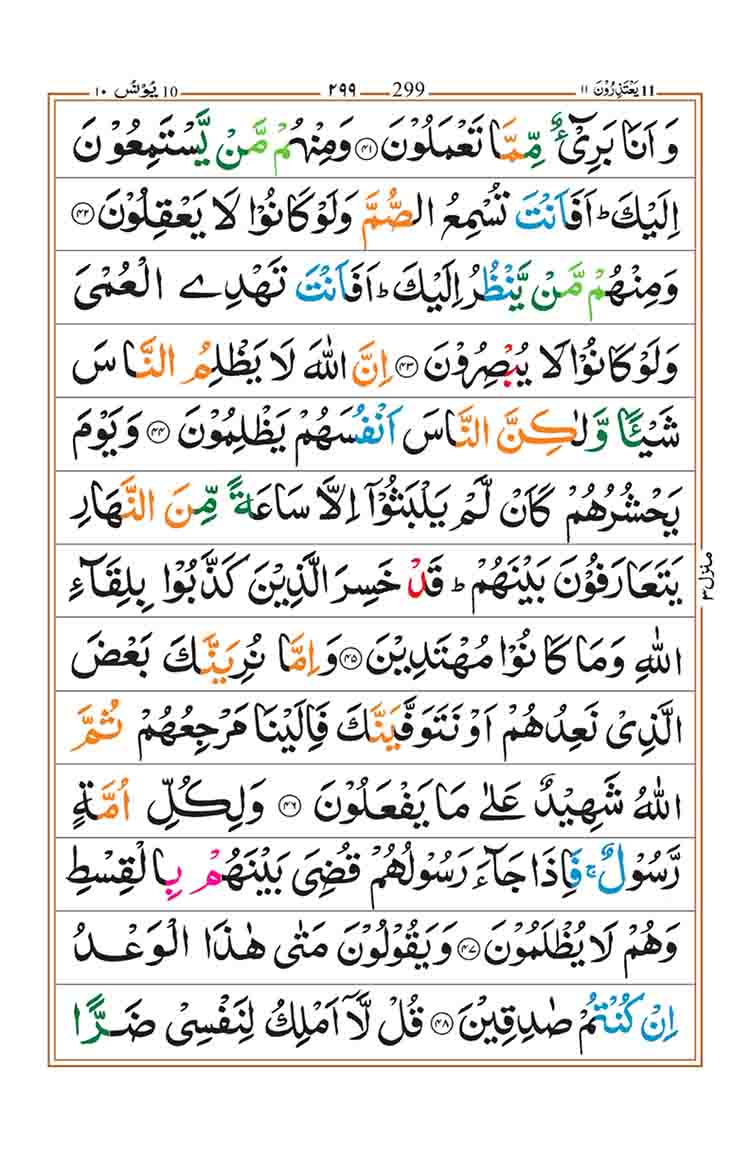 یَعْتَذِرُوْنَ ۱۱ 11 299 ۲۹۹ یُوْنُس ۱۰ 10
وَ اَنَا بَرِیْٓءٌ مِّمَّا تَعْمَلُوْنَ ﴿۴۱﴾ وَمِنْهُمْ مَّنْ یَّسْتَمِعُوْنَ
اِلَیْكَ ؕ اَفَاَنْتَ تُسْمِعُ الصُّمَّ وَلَوْ كَانُوْا لَا یَعْقِلُوْنَ ﴿۴۲﴾
وَمِنْهُمْ مَّنْ یَّنْظُرُ اِلَیْكَ ؕ اَفَاَنْتَ تَهْدِے الْعُمْیَ
وَلَوْ كَانُوْا لَا یُبْصِرُوْنَ ﴿۴۳﴾ اِنَّ اللّٰهَ لَا یَظْلِمُ النَّاسَ
شَیْـًٔا وَّلٰكِنَّ النَّاسَ اَنْفُسَهُمْ یَظْلِمُوْنَ ﴿۴۴﴾ وَیَوْمَ
یَحْشُرُهُمْ كَاَنْ لَّمْ یَلْبَثُوْۤا اِلَّا سَاعَةً مِّنَ النَّهَارِ
یَتَعَارَفُوْنَ بَیْنَهُمْ ؕ قَدْ خَسِرَ الَّذِیْنَ كَذَّبُوْا بِلِقَآءِ
اللّٰهِ وَمَا كَانُوْا مُهْتَدِیْنَ ﴿۴۵﴾ وَاِمَّا نُرِیَنَّكَ بَعْضَ
الَّذِیْ نَعِدُهُمْ اَوْ نَتَوَفَّیَنَّكَ فَاِلَیْنَا مَرْجِعُهُمْ ثُمَّ
اللّٰهُ شَهِیْدٌ عَلٰی مَا یَفْعَلُوْنَ ﴿۴۶﴾ وَلِكُلِّ اُمَّةٍ
رَّسُوْلٌ ۚ فَاِذَا جَآءَ رَسُوْلُهُمْ قُضِیَ بَیْنَهُمْ بِالْقِسْطِ
وَهُمْ لَا یُظْلَمُوْنَ ﴿۴۷﴾ وَیَقُوْلُوْنَ مَتٰی هٰذَا الْوَعْدُ
اِنْ كُنْتُمْ صٰدِقِیْنَ ﴿۴۸﴾ قُلْ لَّاۤ اَمْلِكُ لِنَفْسِیْ ضَرًّا
منزل ۳